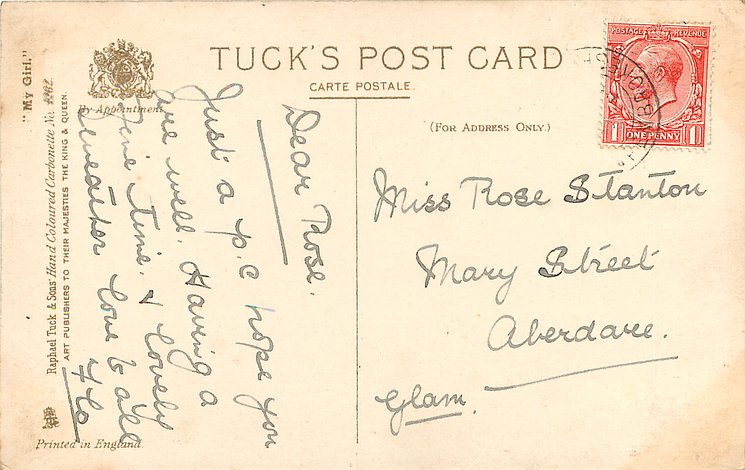 TUCK'S POST CARD
CARTE POSTALE.
(FOR ADDRESS ONLY.)
By Appointment
"My Girl."
Raphael Tuck & Sons' Hand Coloured Carbonette No. 4262.
ART PUBLISHERS TO THEIR MAJESTIES THE KING & QUEEN.
Printed in England.
POSTAGE REVENUE
1 ONE PENNY 1
Dear Rose.
Just a p.c hope you
are well. Having a
fine time. & lovely
weather love to all
Miss Rose Stanton
Mary Street
Aberdare.
Glam.